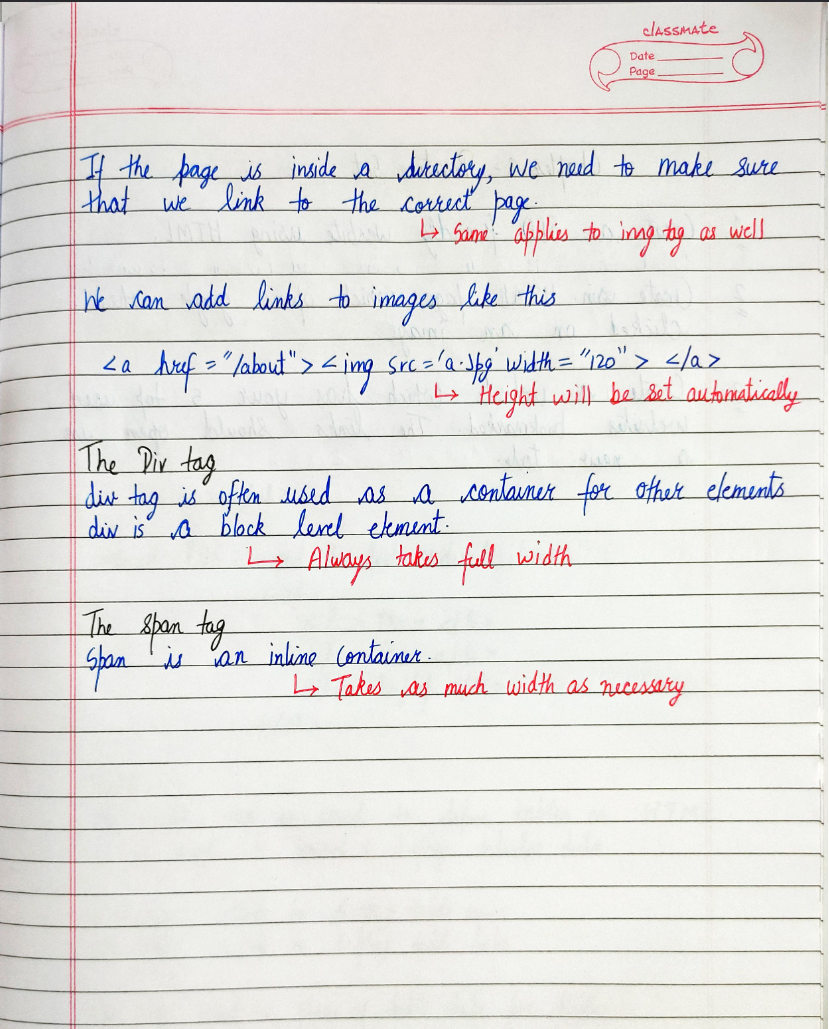 classmate
Date
Page
If the page is inside a directory, we need to make sure
that we link to the correct page.
↳ Same applies to img tag as well
We can add links to images like this
<a href = "/about"> <img src = 'a.jpg' width = "120" > </a>
↳ Height will be set automatically
The Div tag
div tag is often used as a container for other elements
div is a block level element.
↳ Always takes full width
The Span tag
Span is an inline container.
↳ Takes as much width as necessary